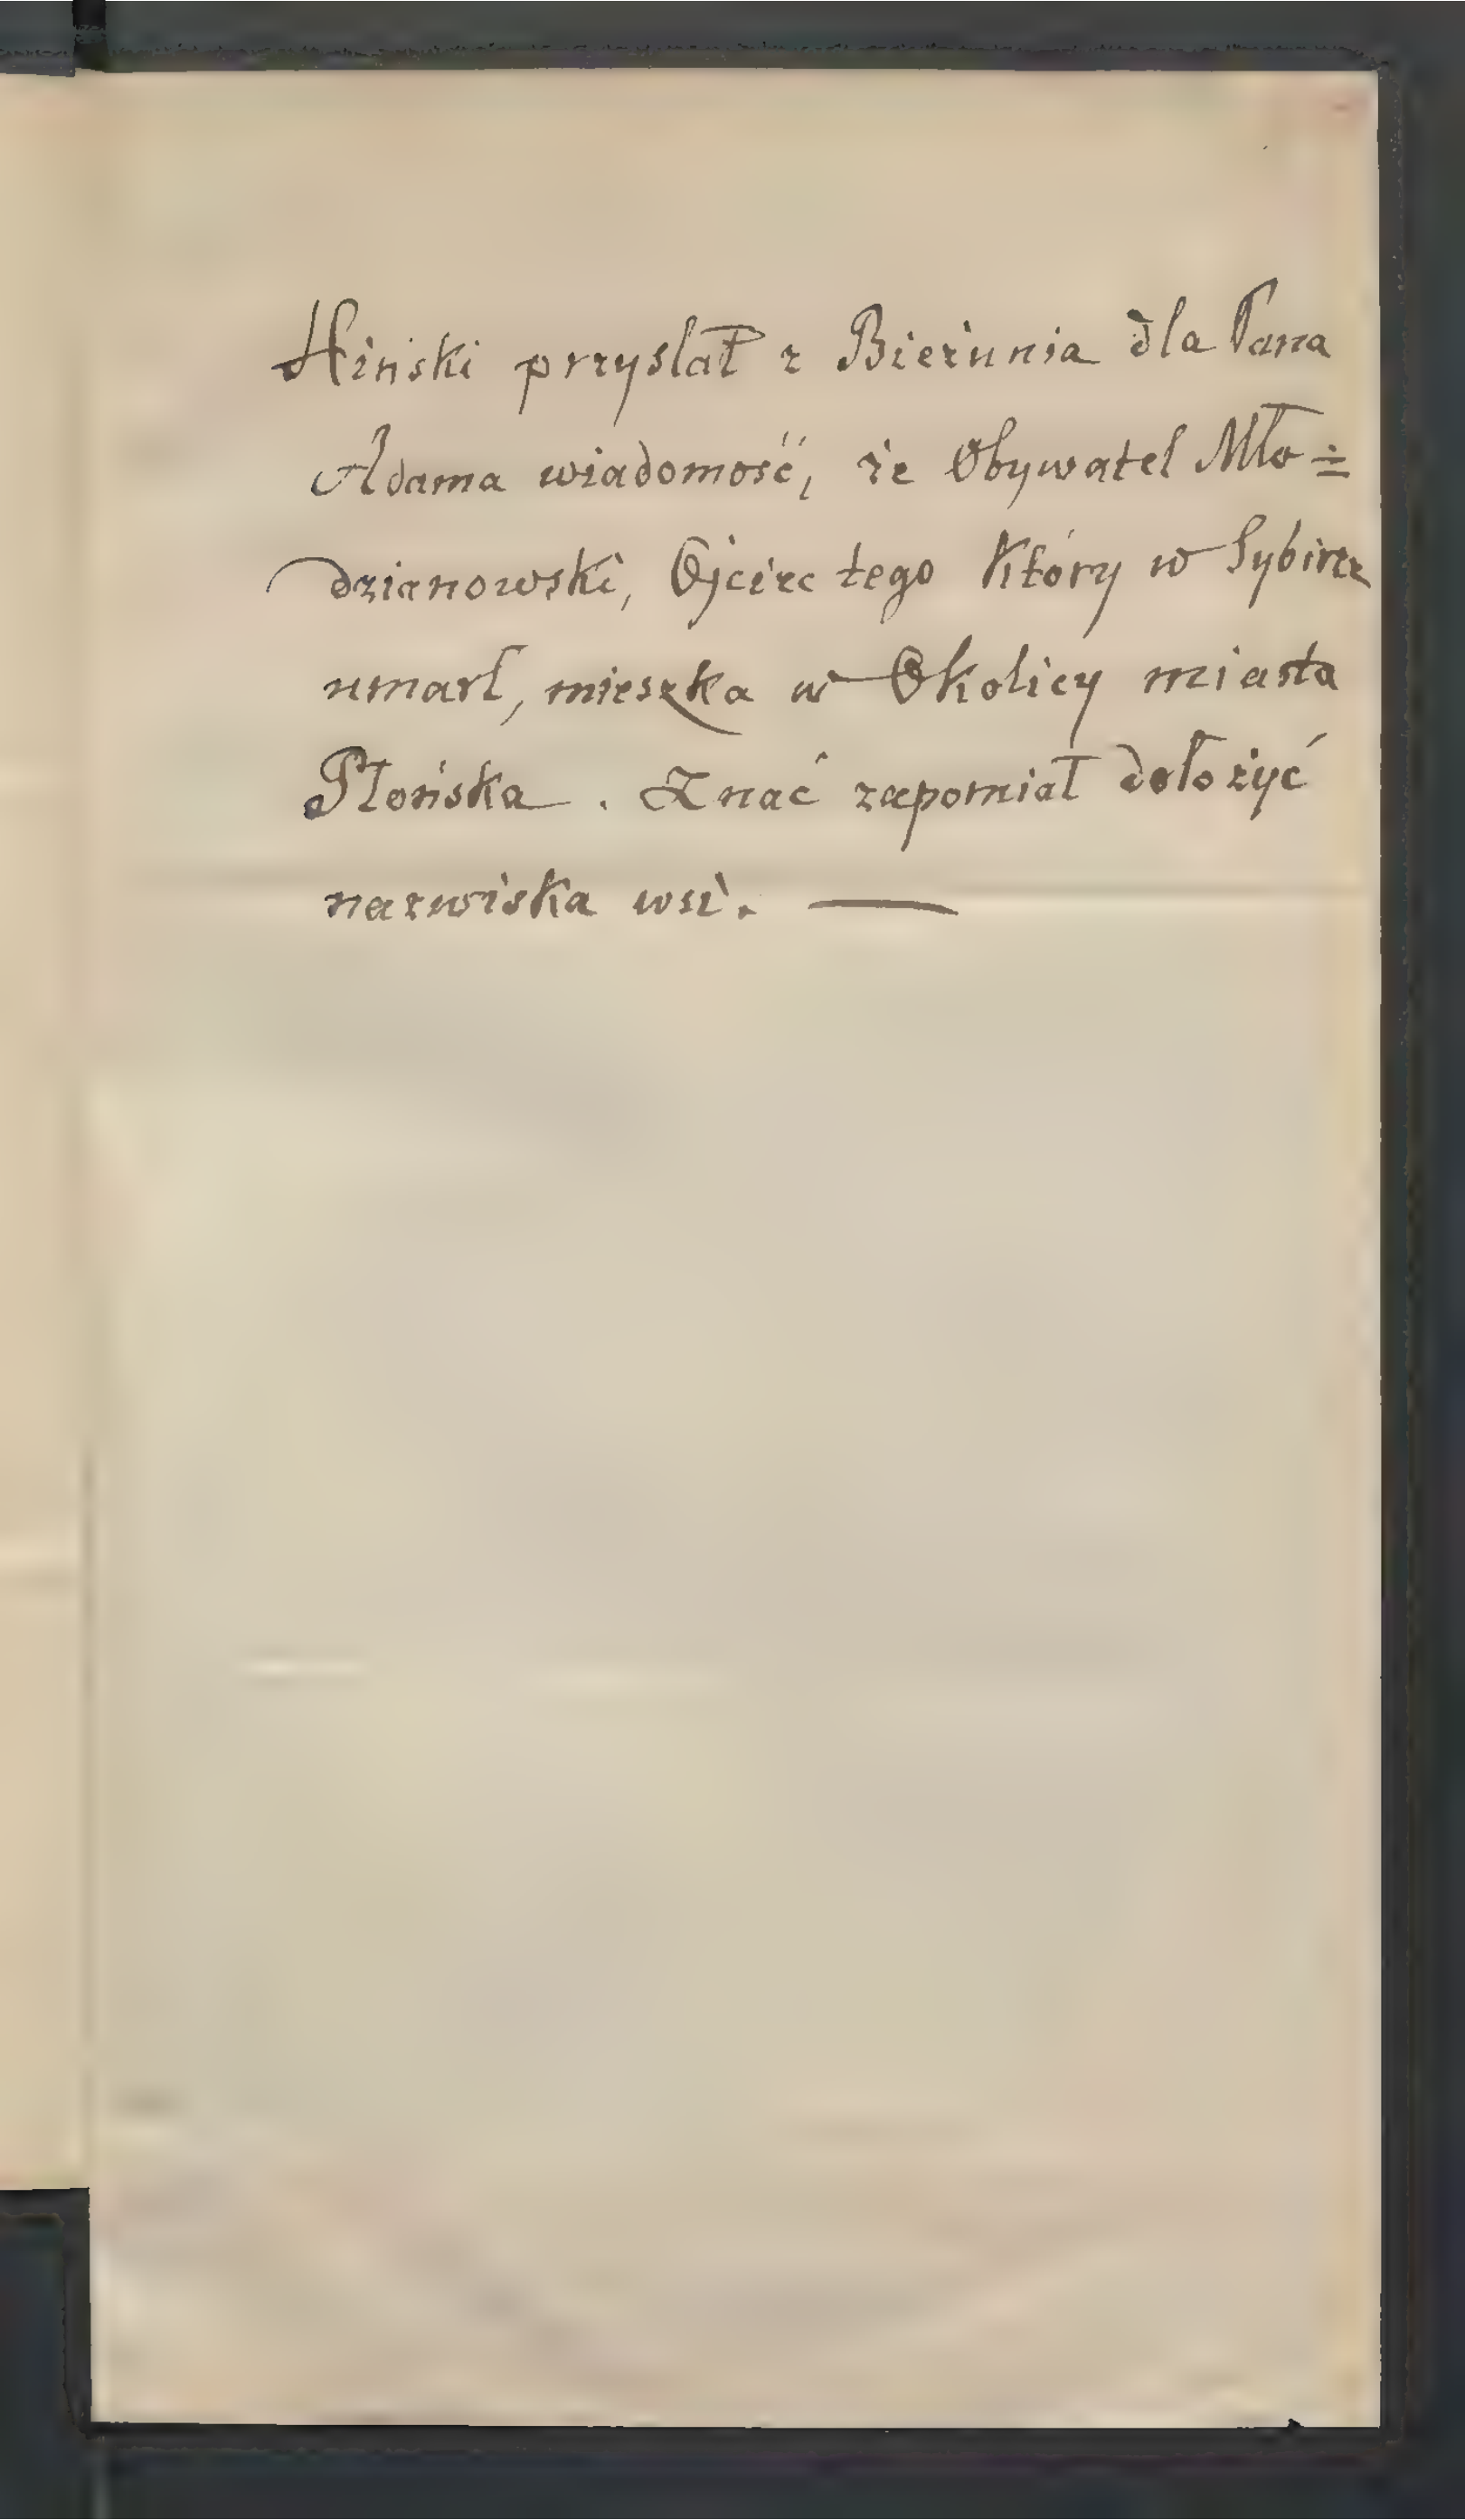 Hiński przysłał z Bieżunia dla Pana
Adama wiadomość, że Obywatel Mło=
dzianowski, Ojciec tego Który w Sybirze
umarł, mieszka w Okolicy miasta
Płońska. Znać zapomiał dołożyć
nazwiska wsi. —